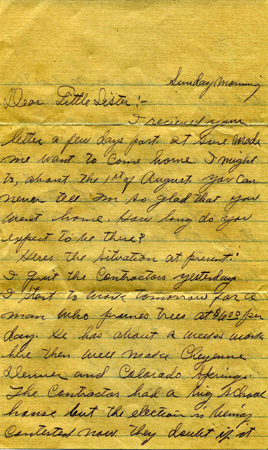 Sunday Morning
Dear Little Sister:-
I recieved your
letter a few days past it sure made
me want to come home. I might
to, about the 1st of August. you can
never tell. Im so glad that you
went home. How long do you
expect to be there?
Heres the situation at present:
I quit the Contractors yesterday
I start to work tomorrow for a
man who prunes trees at per
day. He has about a weeks work
here then well make Cheyenne
Denver and Colorado Springs.
The Contractor had a big School
house but the election is being
contested now they doubt if it